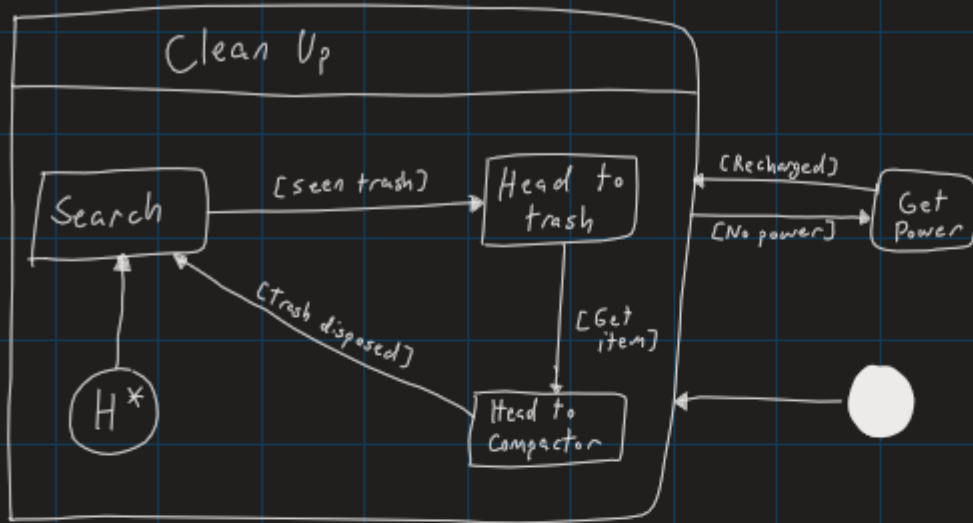 Clean Up
Search
[seen trash]
Head to
trash
[Recharged]
[No power]
Get
Power
[Trash disposed]
[Get
item]
H*
Head to
Compactor